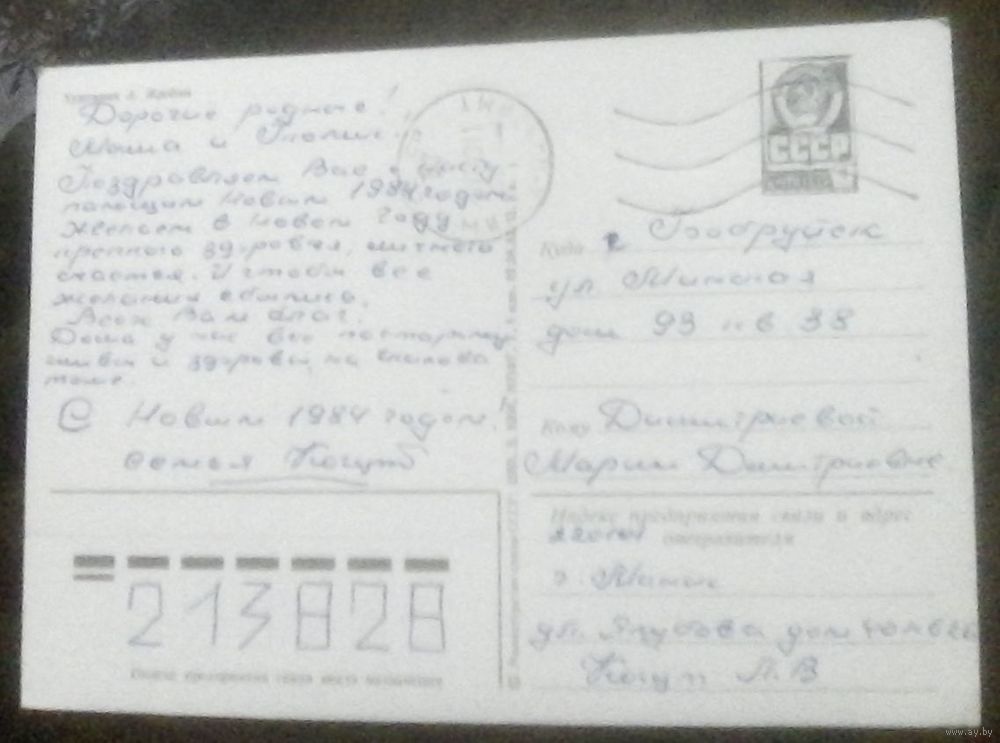 Дорогие родные!
Маша и
Поздравляем Вас с насту
пающим Новым 1984 годом.
Желаем в Новом Году
крепкого здоровья, личного
счастья. И чтобы все
желания сбылись.
Всех Вам благ.
Дома у нас все по старому
живы и здоровы,
С Новым 1984 годом.
семья Когут
СССР
Куда г Бобруйск
ул Минская
дом 93 кв 38
Кому Димитриевой
Марии Димитриевне
Индекс предприятия связи и адрес
отправителя
г. Минск
ул. Якубова дом
Когут Л. В
213828
Индекс предприятия связи места назначения
www.ay.by